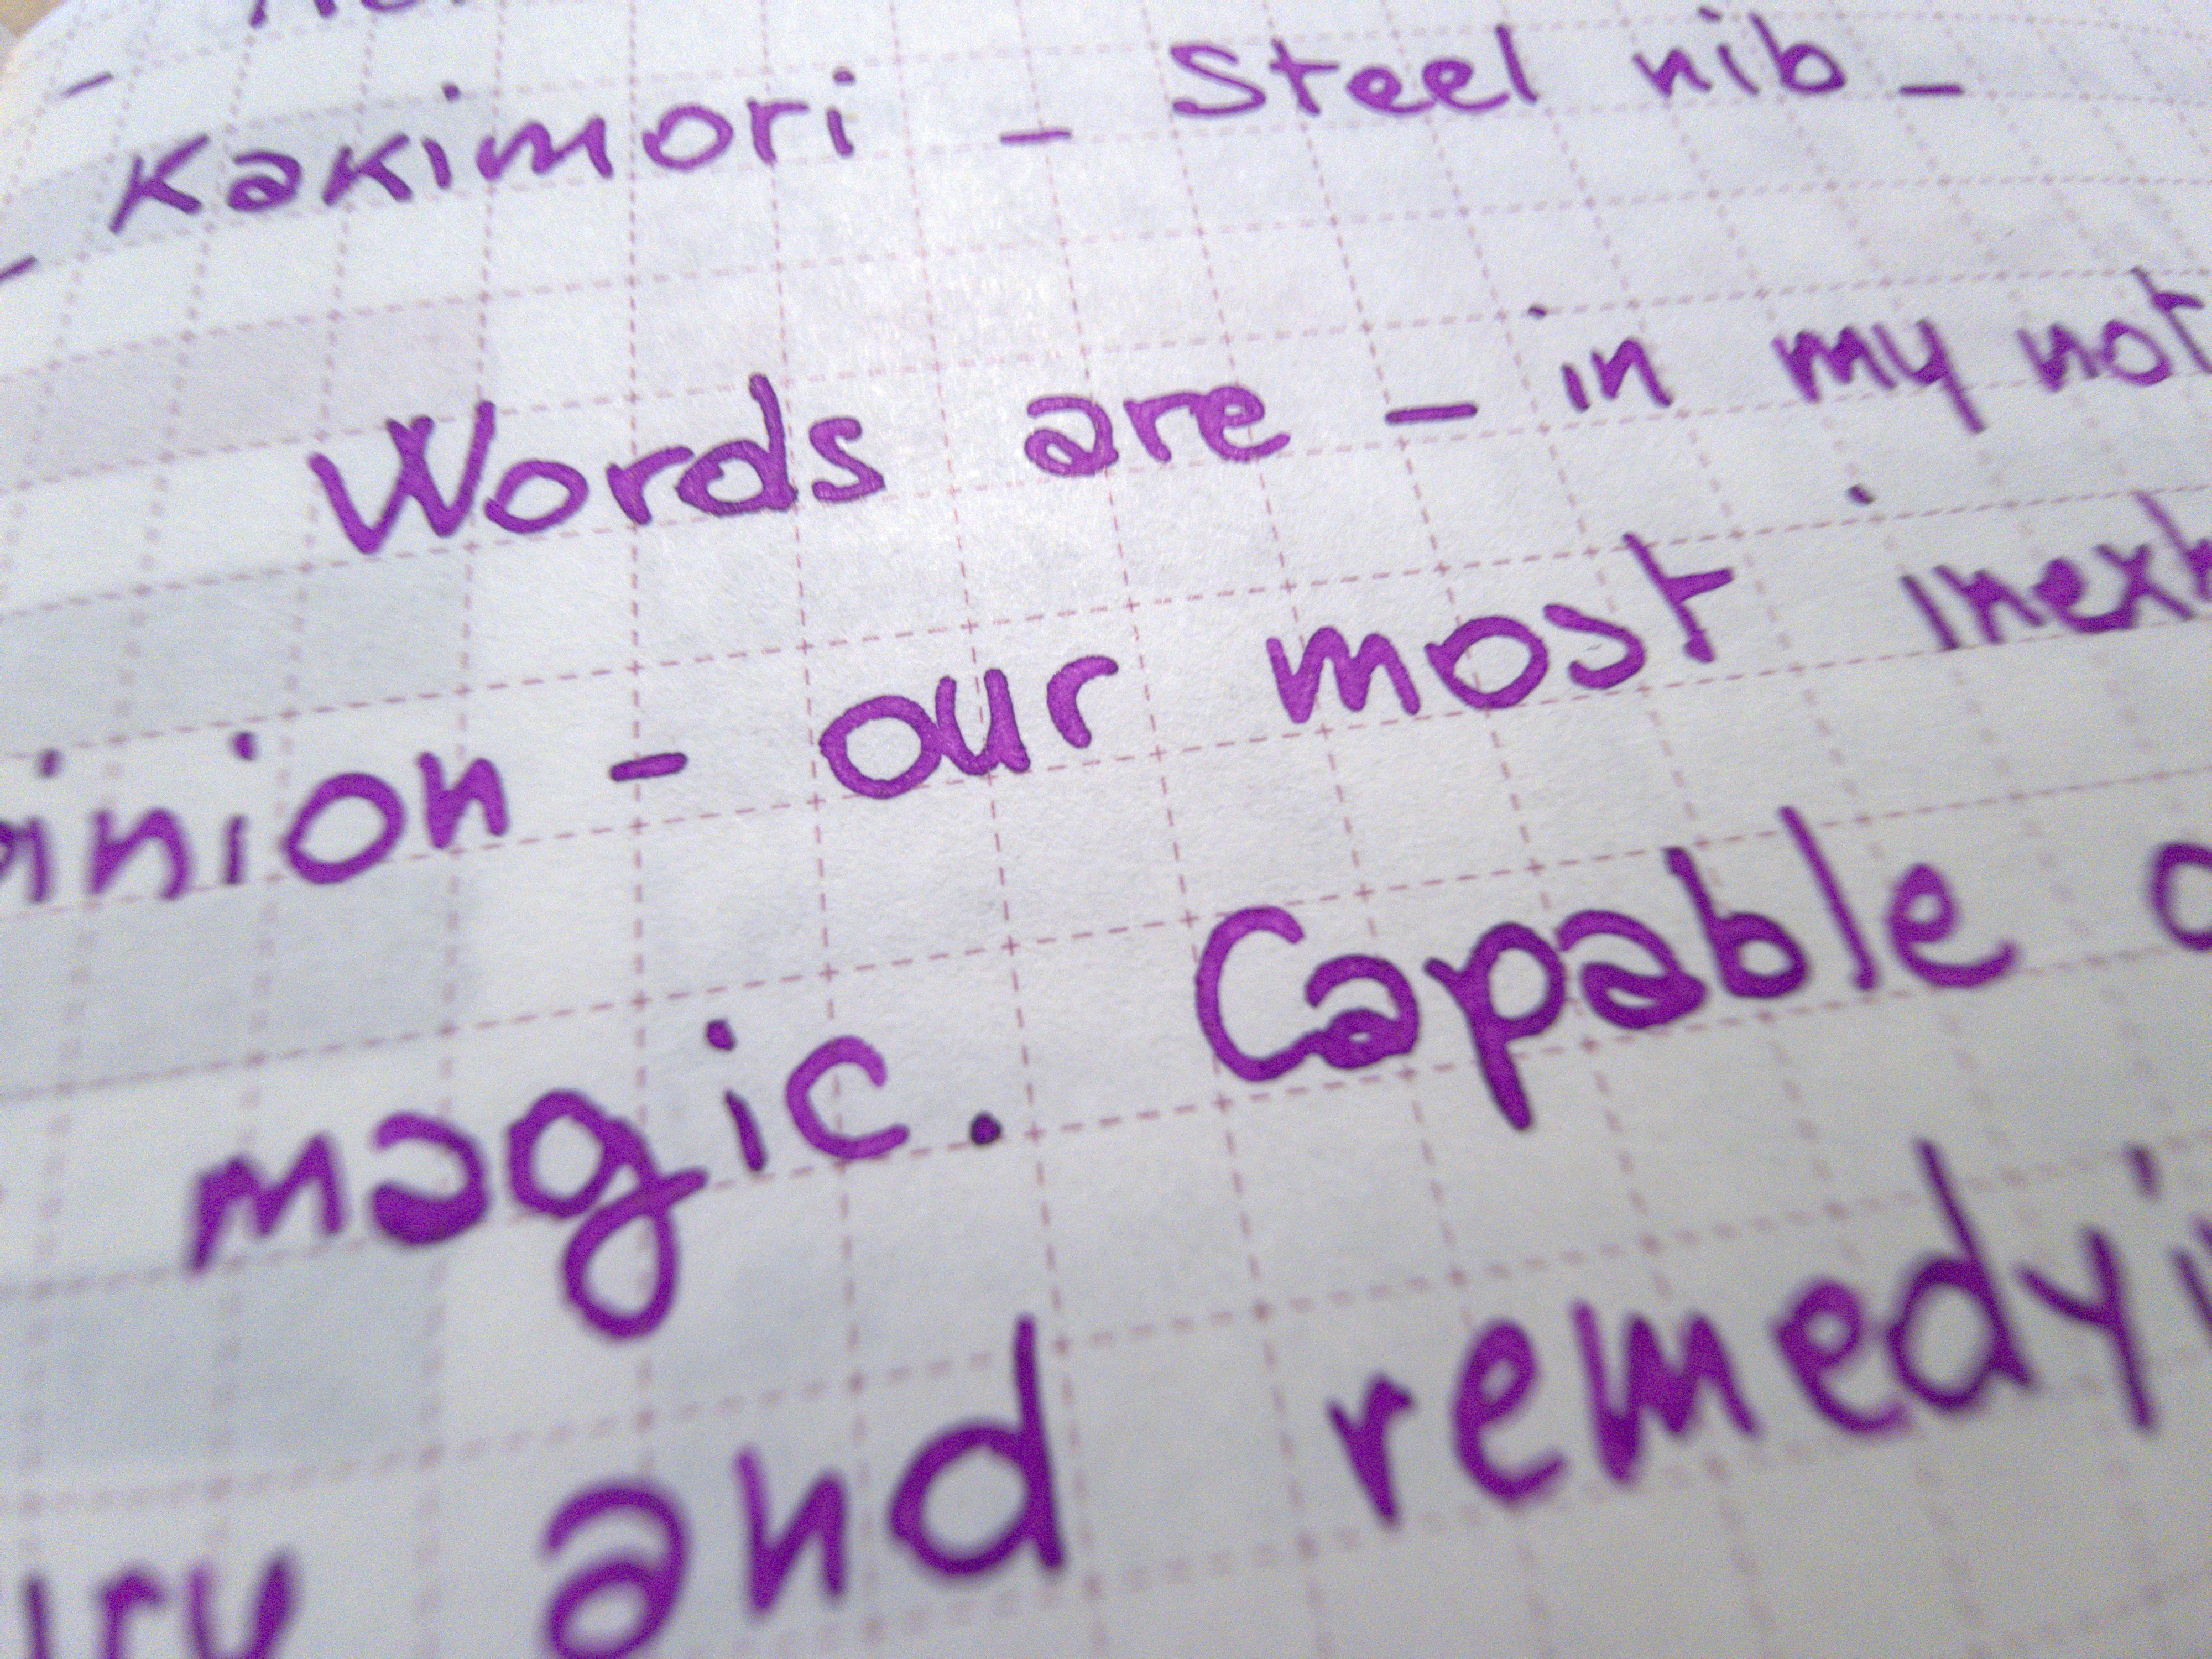 - Kakimori - Steel nib -
Words are - in my not
inion - our most inexh
magic. Capable o
and remedyi